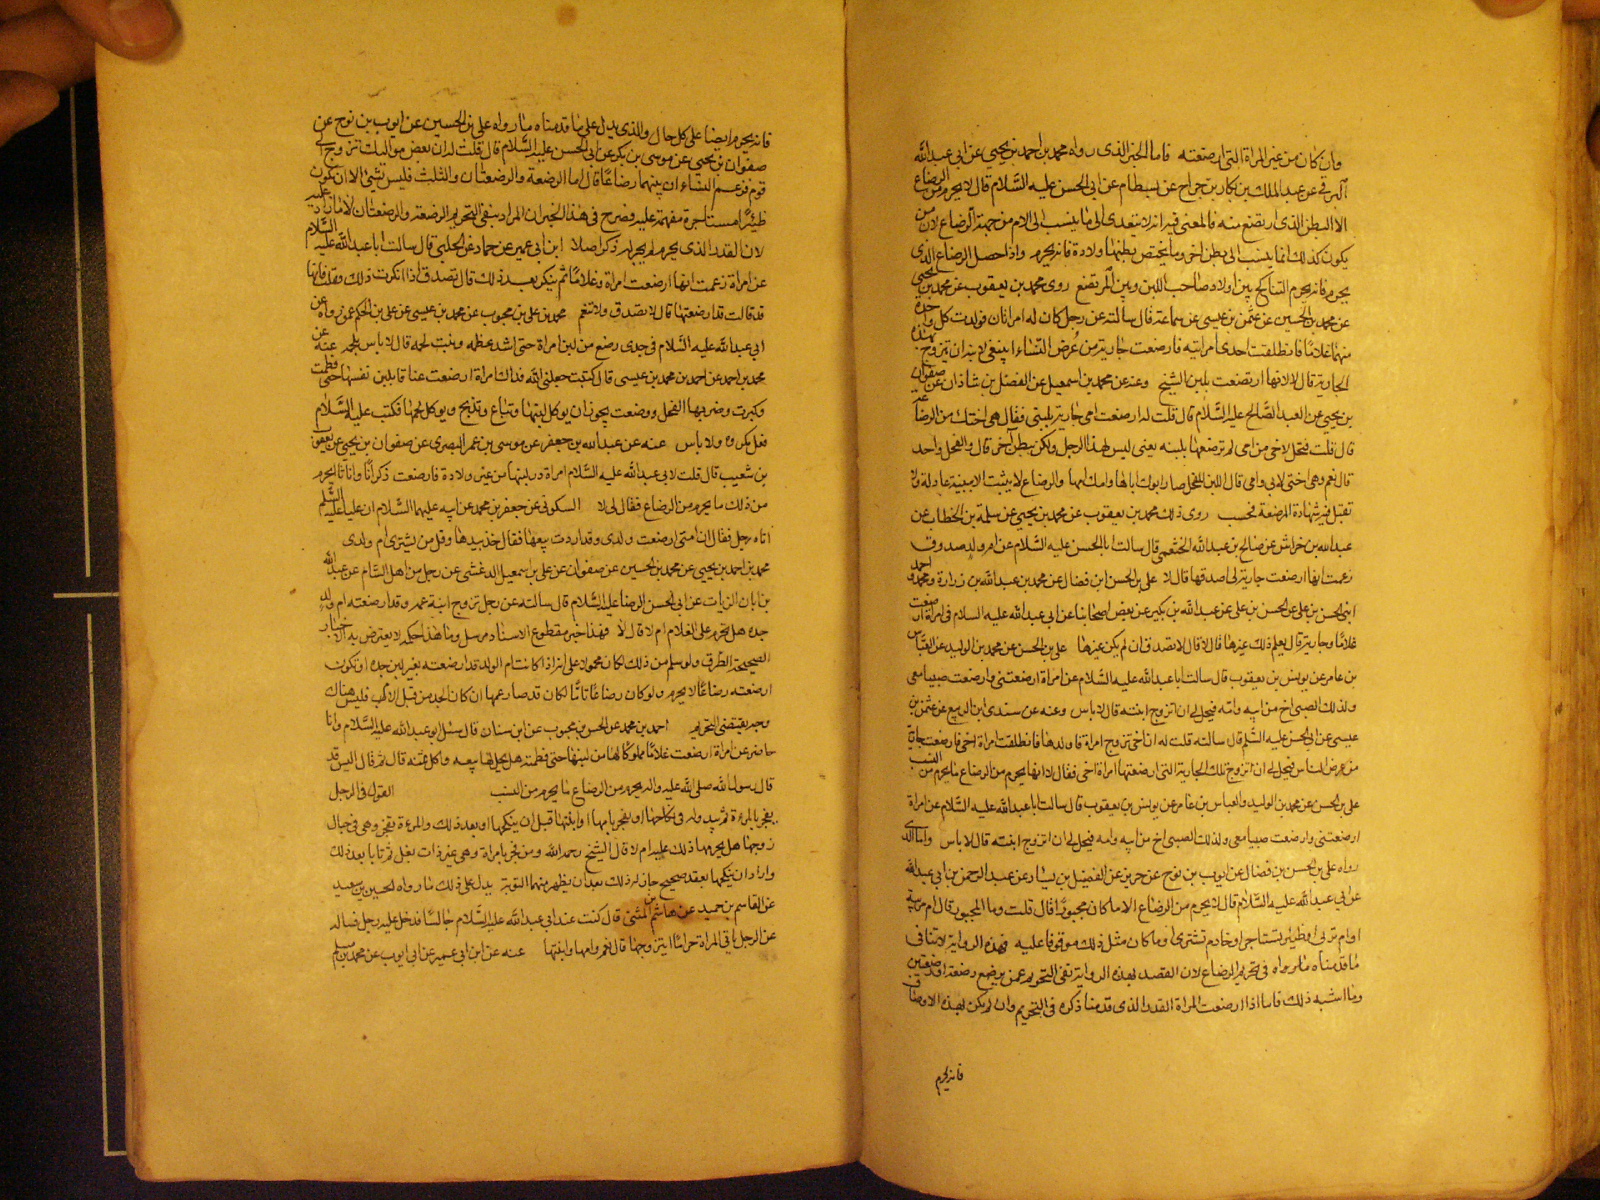 وان كان من غير المراة التى ارضعته فاما الخبر الذى رواه محمد بن احمد بن يحيى عن ابى عبد الله
البرقى عن عبد الملك بن بكار بن جراح عن بسطام عن ابى الحسن عليه السلام قال لا يحرم من الرضاع
الا البطن الذى ارتضع منه فالمعنى فيه انه لا يتعدى الى ما ينسب الى الام من جهة الرضاع لان من
يكون كذلك انما ينسب الى بطن اخر وما يختص ببطنها ولادة فانه يحرم واذا حصل الرضاع الذى
يحرم فانه يحرم التناكح بين اولاد صاحب اللبن وبين المرتضع روى محمد بن يعقوب عن محمد بن يحيى
عن محمد بن الحسين عن عثمن بن عيسى عن سماعة قال سالته عن رجل كان له امراتان فولدت كل واحدة
منهما غلاما فانطلقت احدى امراتيه فارضعت جارية من عرض النساء اينبغى لابنه ان يتزوج بهذه
الجارية قال لا لانها ارتضعت بلبن الشيخ وعنه عن محمد بن اسمعيل عن الفضل بن شاذان عن صفوان
بن يحيى عن العبد الصالح عليه السلام قال قلت له ارضعت امى جارية بلبنى فقال هى اختك من الرضاعة
قال قلت فتحل لاخى من امى لم ترضعها بلبنه يعنى ليس لهذا الرجل ولكن ببطن آخر قال والفحل واحد
قال نعم وهى اختى لابى وامى قال اللبن للفحل صار ابوك اباها وامك امها والرضاع لا يثبت الا ببينة عادلة ولا
تقبل فيه شهادة المرضعة فحسب روى ذلك محمد بن يعقوب عن محمد بن يحيى عن سلمة بن الخطاب عن
عبد الله بن خراش عن صالح بن عبد الله الخثعمى قال سالت ابا الحسن عليه السلام عن ام ولد صدوق
زعمت انها ارضعت جارية لى اصدقها قال لا على بن الحسن ابن فضال عن محمد بن عبد الله بن زرارة ومحمد واحمد
ابنى الحسن بن على عن الحسن بن على عن عبد الله بن بكير عن بعض اصحابنا عن ابى عبد الله عليه السلام فى امراة ارضعت
غلاما وجارية قال يعلم ذلك غيرها قال لا قال لا تصدق ان لم يكن غيرها على بن الحسن عن محمد بن الوليد عن العباس
بن عامر عن يونس بن يعقوب قال سالت ابا عبد الله عليه السلام عن امراة ارضعتنى وارضعت صبيا معى
ولذلك الصبى اخ من ابيه وامه فيحل لى ان اتزوج ابنته قال لا باس وعنه عن سندى ابن الربيع عن عثمن بن
عيسى عن ابى الحسن عليه السلم قال سالته قلت له ان اخى تزوج امراة فاولدها فانطلقت امراة اخى فارضعت جارية
من عرض الناس فيحل لى ان اتزوج تلك الجارية التى ارضعتها امراة اخى فقال لا انها يحرم من الرضاع ما يحرم من النسب
على بن الحسن عن محمد بن الوليد والعباس بن عامر عن يونس بن يعقوب قال سالت ابا عبد الله عليه السلام عن امراة
ارضعتنى وارضعت صبيا معى ولذلك الصبى اخ من ابيه وامه فيحل لى ان اتزوج ابنته قال لا باس واما الذى
رواه على بن الحسن بن فضال عن ايوب بن نوح عن حريز عن الفضيل بن يسار عن عبد الرحمن بن ابى عبد الله
عن ابى عبد الله عليه السلام قال لا يحرم من الرضاع الا ما كان مجبورا قال قلت وما المجبور قال ام مربية
او ام تربى او ظئر تستاجر او خادم تشترى او ما كان مثل ذلك موقوفا عليه فهذه الرواية لا تنافى
ما قدمناه مما رواه فى تحريم الرضاع لان القصد بهذه الرواية نفى التحريم عمن يرضع رضعة او رضعتين
وما اشبه ذلك فاما اذا ارضعت المراة القدر الذى قدمنا ذكره فى التحريم وان لم يكن بهذه الاوصاف
فانه يحرم
فانه يحرم ايضا على كل حال والذى يدل على ما قدمناه ما رواه على بن الحسين عن ايوب بن نوح عن
صفوان بن يحيى عن موسى بن بكر عن ابى الحسن عليه السلام قال قلت له ان بعض مواليك تزوج الى
قوم فزعم النساء ان بينهما رضاعا قال اما الرضعة والرضعتان والثلث فليس بشئ الا ان يكون
ظئرا مستاجرة مقيمة عليه فصرح فى هذا الخبر ان المراد بنفى التحريم الرضعة والرضعتان لا ما زاد عليه
لان القدر الذى يحرم لم يجر له ذكر اصلا ابن ابى عمير عن حماد عن الحلبى قال سالت ابا عبد الله عليه السلام
عن امراة زعمت انها ارضعت امراة وغلاما ثم تنكر بعد ذلك قال تصدق اذا انكرت ذلك وقلت فانها
قد قالت قد ارضعتها قال لا تصدق ولا تنعم محمد بن على بن محبوب عن محمد بن عيسى عن على بن الحكم عمن رواه عن
ابى عبد الله عليه السلام فى جدى رضع من لبن امراة حتى اشتد عظمه ونبت لحمه قال لا باس بلحمه عنه عن
محمد بن احمد عن احمد بن محمد بن عيسى قال كتبت جعلنى الله فداك امراة ارضعت عناقا بلبن نفسها حتى فطمت
وكبرت وضربها الفحل ووضعت يجوز ان يوكل لبنها وتباع وتذبح ويوكل لحمها فكتب عليه السلام
فعل مكروه ولا باس عنه عن عبد الله بن جعفر عن موسى بن عمر البصرى عن صفوان بن يحيى عن يعقوب
بن شعيب قال قلت لابى عبد الله عليه السلام امراة در لبنها من غير ولادة فارضعت ذكرانا واناثا ايحرم
من ذلك ما يحرم من الرضاع فقال لى لا السكونى عن جعفر بن محمد عن ابيه عليهما السلام ان عليا عليه السلم
اتاه رجل فقال ان امتى ارضعت ولدى وقد اردت بيعها فقال خذ بيدها وقل من يشترى ام ولدى
محمد بن احمد بن يحيى عن محمد بن الحسين عن صفوان عن على بن اسمعيل الدغشى عن رجل من اهل الشام عن عبد الله
بن ابان الزيات عن ابى الحسن الرضا عليه السلام قال سالته عن رجل تزوج ابنة عمه وقد ارضعته ام ولد
جده هل تحرم على الغلام ام لا قال لا فهذا خبر مقطوع الاسناد مرسل وما هذا حكمه لا يعترض به الاخبار
الصحيحة الطرق ولو سلم من ذلك لكان محمولا على انه اذا كانت ام الولد قد ارضعته بغير لبن جده او تكون
ارضعته رضاعا لا يحرم ولو كان رضاعا تاما لكان قد صار عمها ان كان الجد من قبل الاب فليس هناك
وجه يقتضى التحريم احمد بن محمد عن الحسن بن محبوب عن ابن سنان قال سئل ابو عبد الله عليه السلام وانا
حاضر عن امراة ارضعت غلاما مملوكا لها من لبنها حتى فطمته هل يحل لها بيعه واكل ثمنه قال ثم قال اليس قد
قال رسول الله صلى الله عليه واله يحرم من الرضاع ما يحرم من النسب القول فى الرجل
يفجر بالمرءة ثم يبدو له فى نكاحها او يفجر بامها او ابنتها قبل ان ينكحها او بعد ذلك والمرءة تفجر وهى فى حبال
زوجها هل يحرمها ذلك عليه ام لا قال الشيخ رحمه الله ومن فجر بامراة وهى غير ذات بعل ثم تابا بعد ذلك
واراد ان ينكحها بعقد صحيح جاز له ذلك بعد ان يظهر منهما التوبة يدل على ذلك ما رواه الحسين بن سعيد
عن القاسم بن حميد عن هاشم بن المثنى قال كنت عند ابى عبد الله عليه السلام جالسا فدخل عليه رجل فساله
عن الرجل ياتى المراة حراما ايتزوجها قال نعم وامها وابنتها عنه عن ابن ابى عمير عن ابى ايوب عن محمد بن مسلم